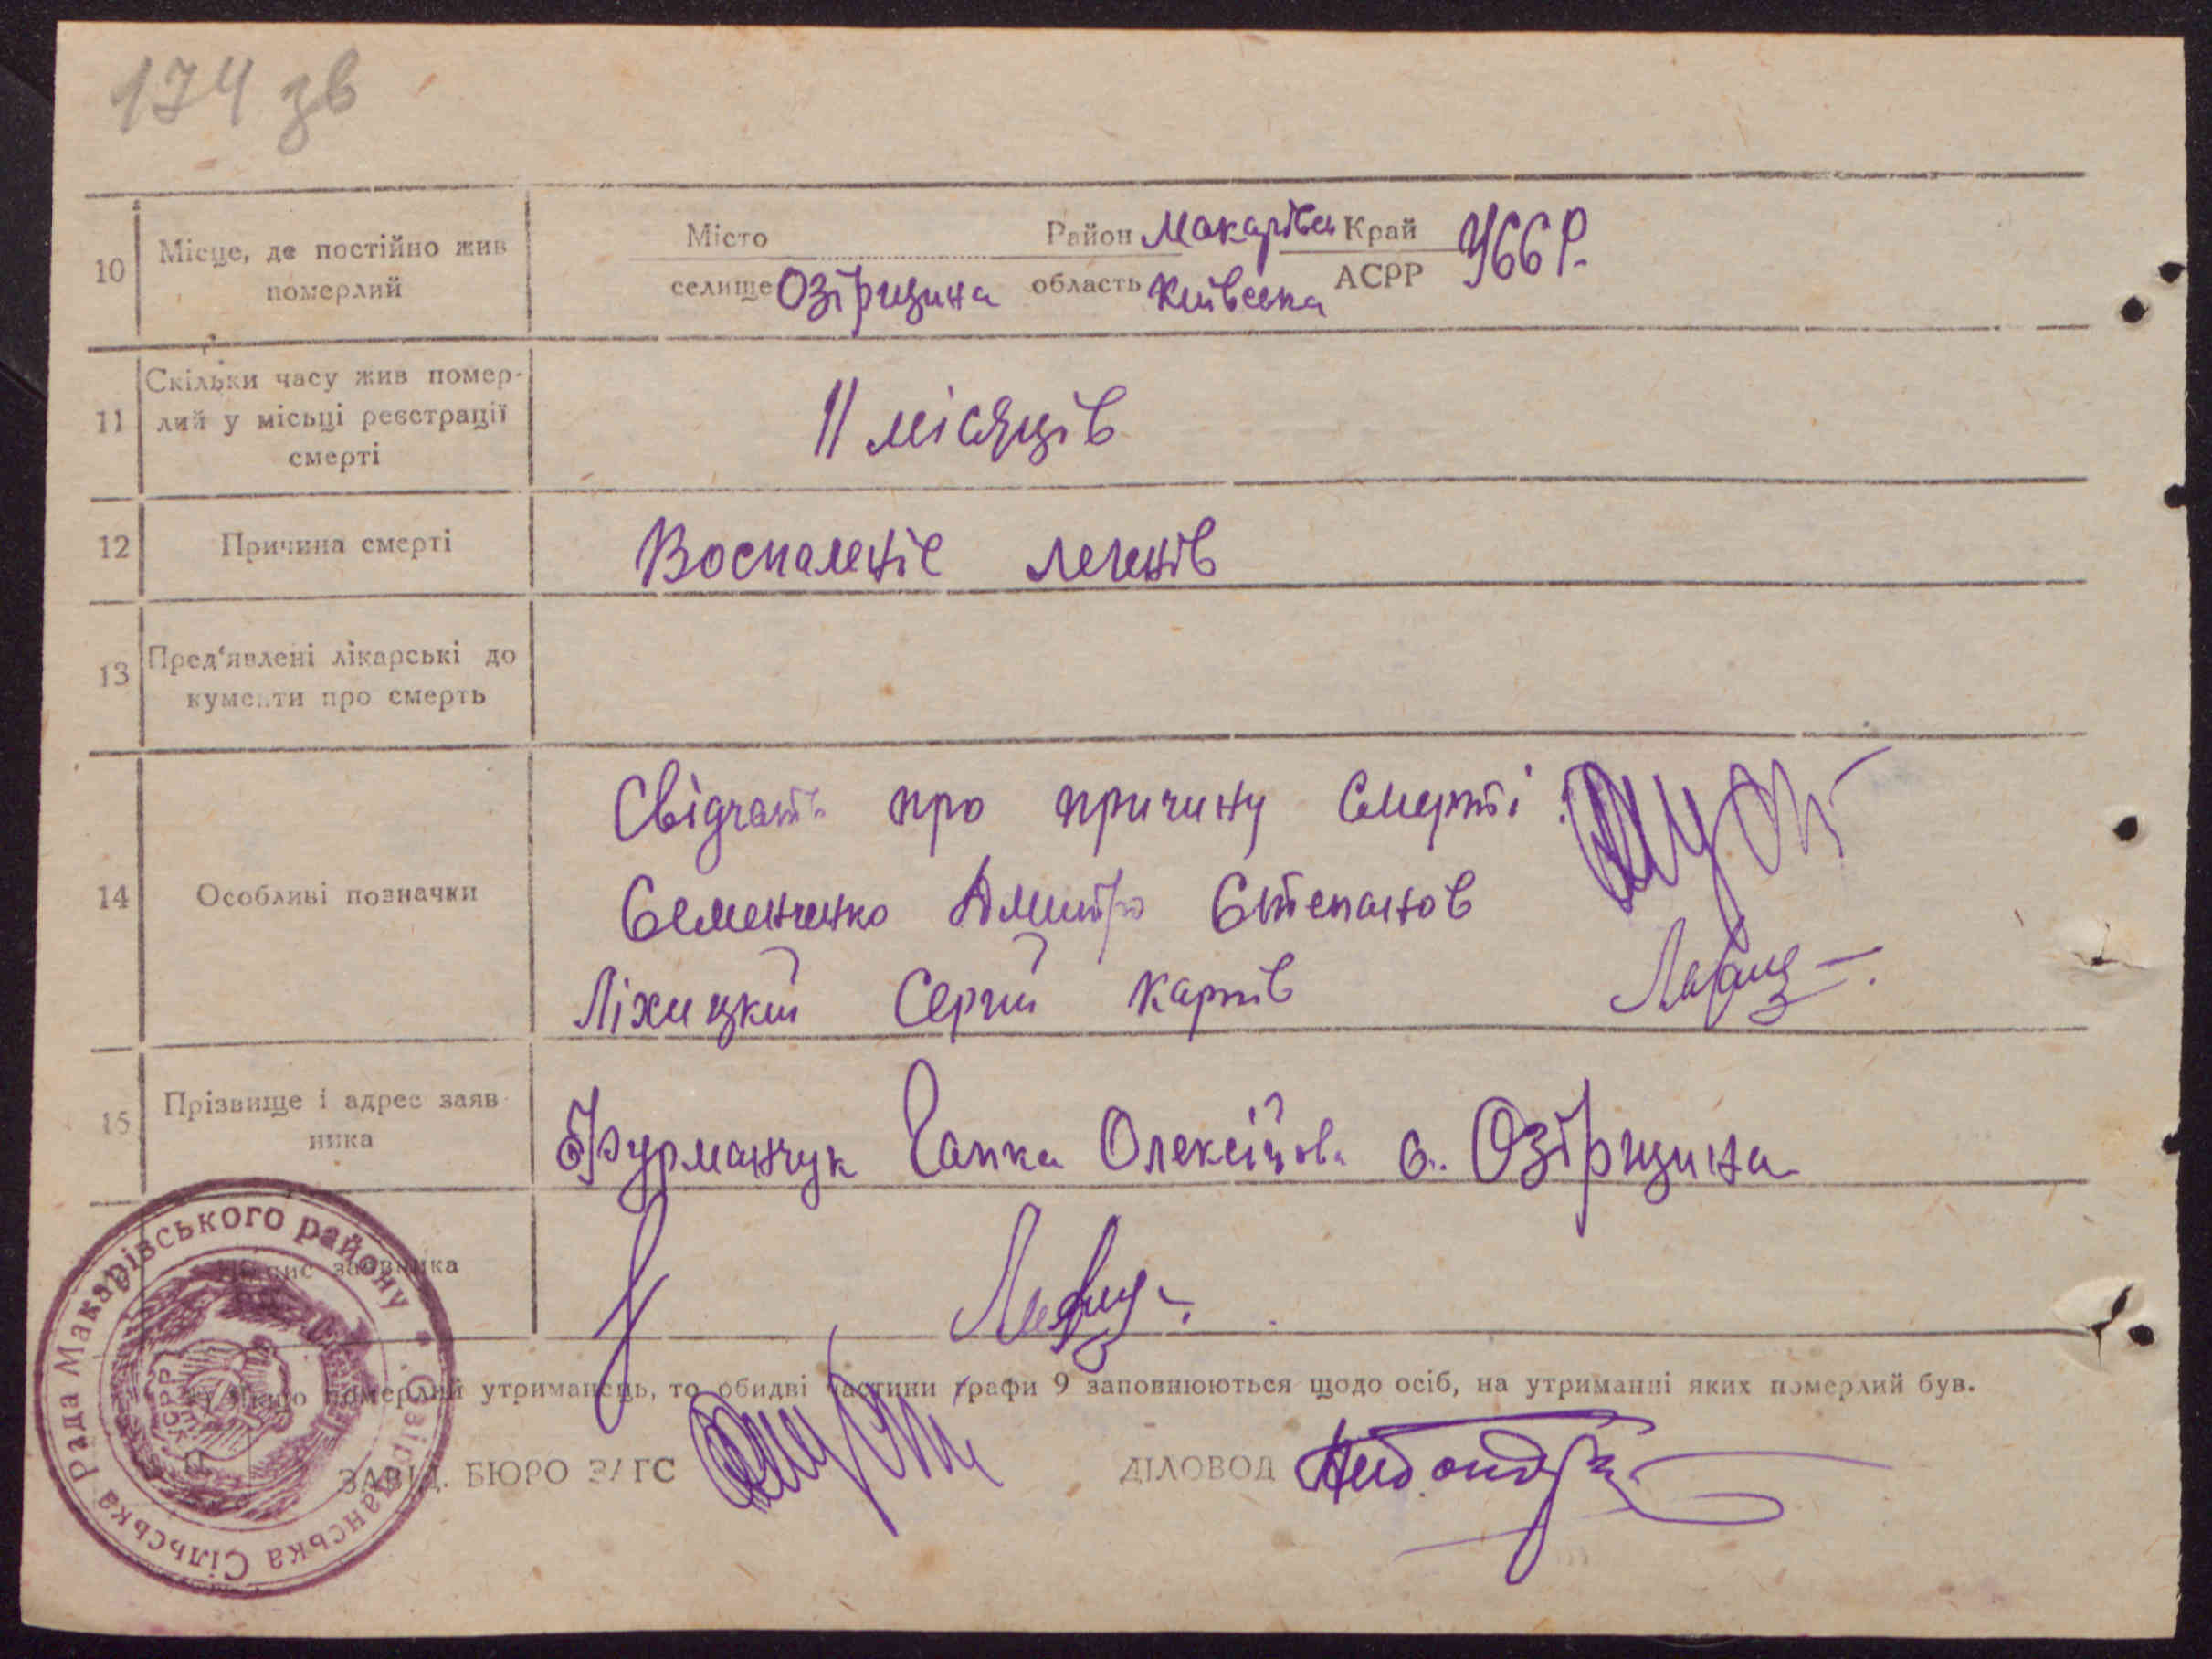 174 зв
10 Місце, де постійно жив померлий
Місто Район Макарівсь Край УССР.
селище Озірщина область Київська АСРР
11 Скільки часу жив помер-
лий у місьці реєстрації
смерті
11 місяців
12 Причина смерті
Воспаленіє легенів
13 Пред'явлені лікарські до
кументи про смерть
14 Особливі позначки
Свідчать про причину смерті:
Семенченко Дмитро Степанов
Ліхицкий Сергій Карпів
15 Прізвище і адрес заяв
ника
Фурманчук Гапка Олексійов. с. Озірщина
Підпис заявника
померлий утриманець, то обидві частини графи 9 заповнюються щодо осіб, на утриманні яких померлий був.
ЗАВІД. БЮРО ЗАГС ДІЛОВОД
Озірщанська Сільська Рада Макарівського району
УСРР